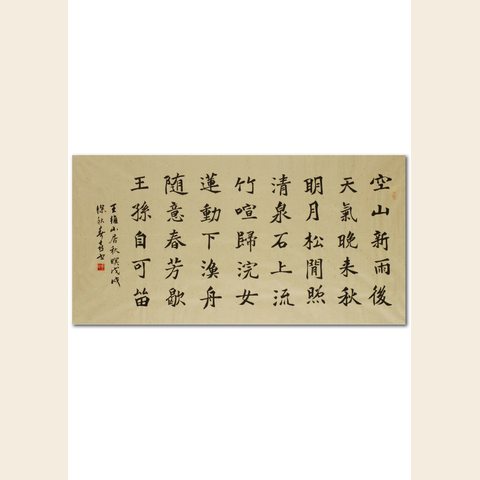 空山新雨後
天氣晚来秋
明月松間照
清泉石上流
竹喧歸浣女
蓮動下漁舟
随意春芳歇
王孫自可留
王維山居秋暝戊戌
深秋